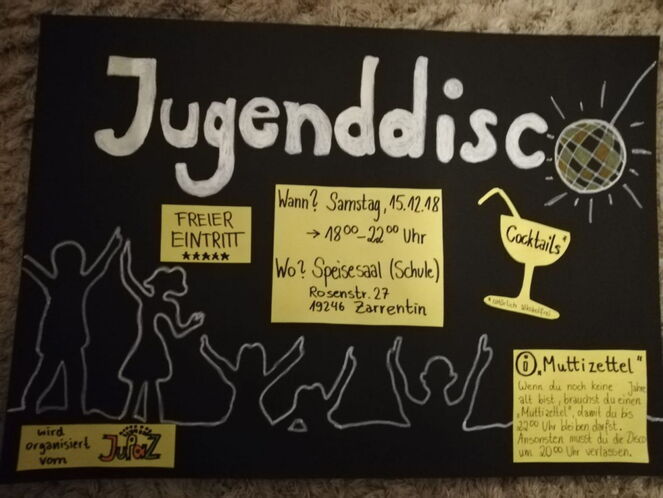 Jugenddisco
FREIER
EINTRITT
★★★★★
Wann? Samstag, 15.12.18
→ 18⁰⁰-22⁰⁰ Uhr
Wo? Speisesaal (Schule)
Rosenstr. 27
19246 Zarrentin
Cocktails*
*natürlich alkoholfrei
wird
organisiert
vom
JuPaZ
ⓘ „Muttizettel"
Wenn du noch keine Jahre
alt bist, brauchst du einen
„Muttizettel", damit du bis
22⁰⁰ Uhr bleiben darfst.
Ansonsten musst du die Disco
um 20⁰⁰ Uhr verlassen.